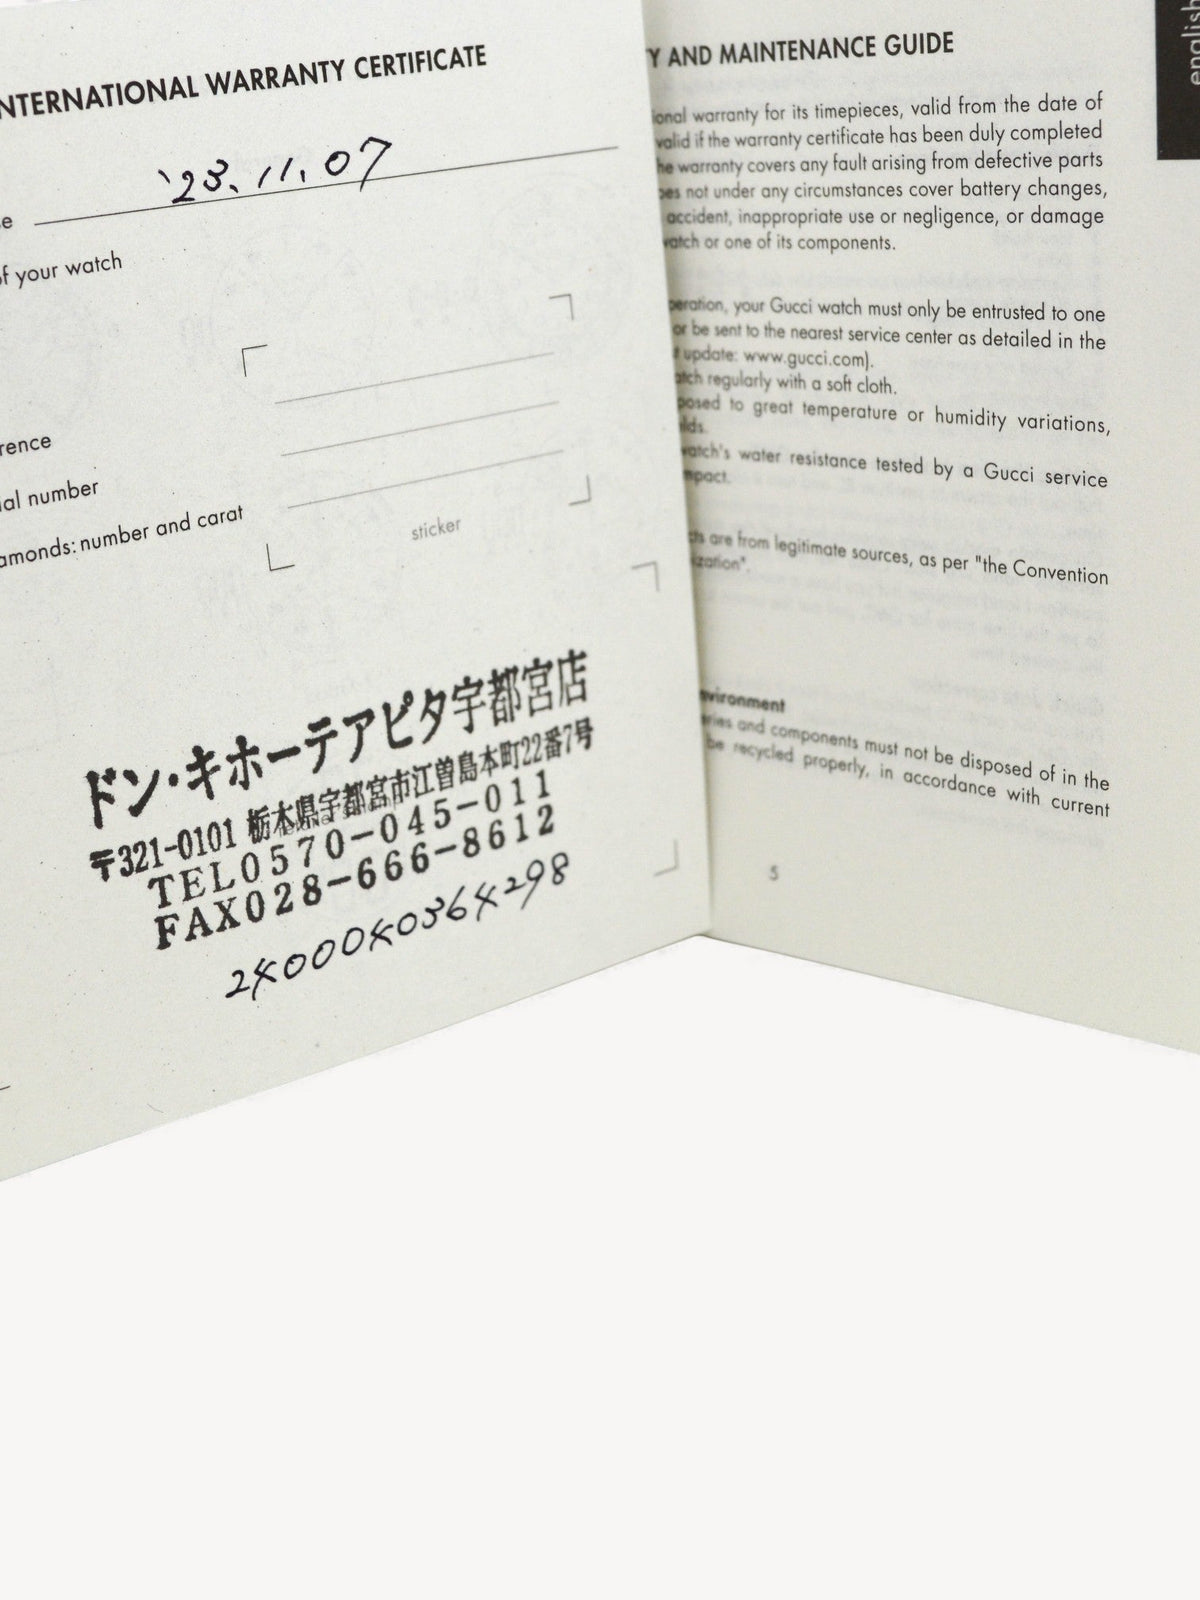 INTERNATIONAL WARRANTY CERTIFICATE
'23.11.07
of your watch
number
diamonds: number and carat
sticker
ドン・キホーテアピタ宇都宮店
〒321-0101 栃木県宇都宮市江曽島本町22番7号
TEL0570-045-011
FAX028-666-8612
AND MAINTENANCE GUIDE
warranty for its timepieces, valid from the date of
valid if the warranty certificate has been duly completed
he warranty covers any fault arising from defective parts
not under any circumstances cover battery changes,
accident, inappropriate use or negligence, or damage
watch or one of its components.
your Gucci watch must only be entrusted to one
or be sent to the nearest service center as detailed in the
update: www.gucci.com).
regularly with a soft cloth.
to great temperature or humidity variations,
watch's water resistance tested by a Gucci service
are from legitimate sources, as per "the Convention
environment
and components must not be disposed of in the
be recycled properly, in accordance with current
5
english